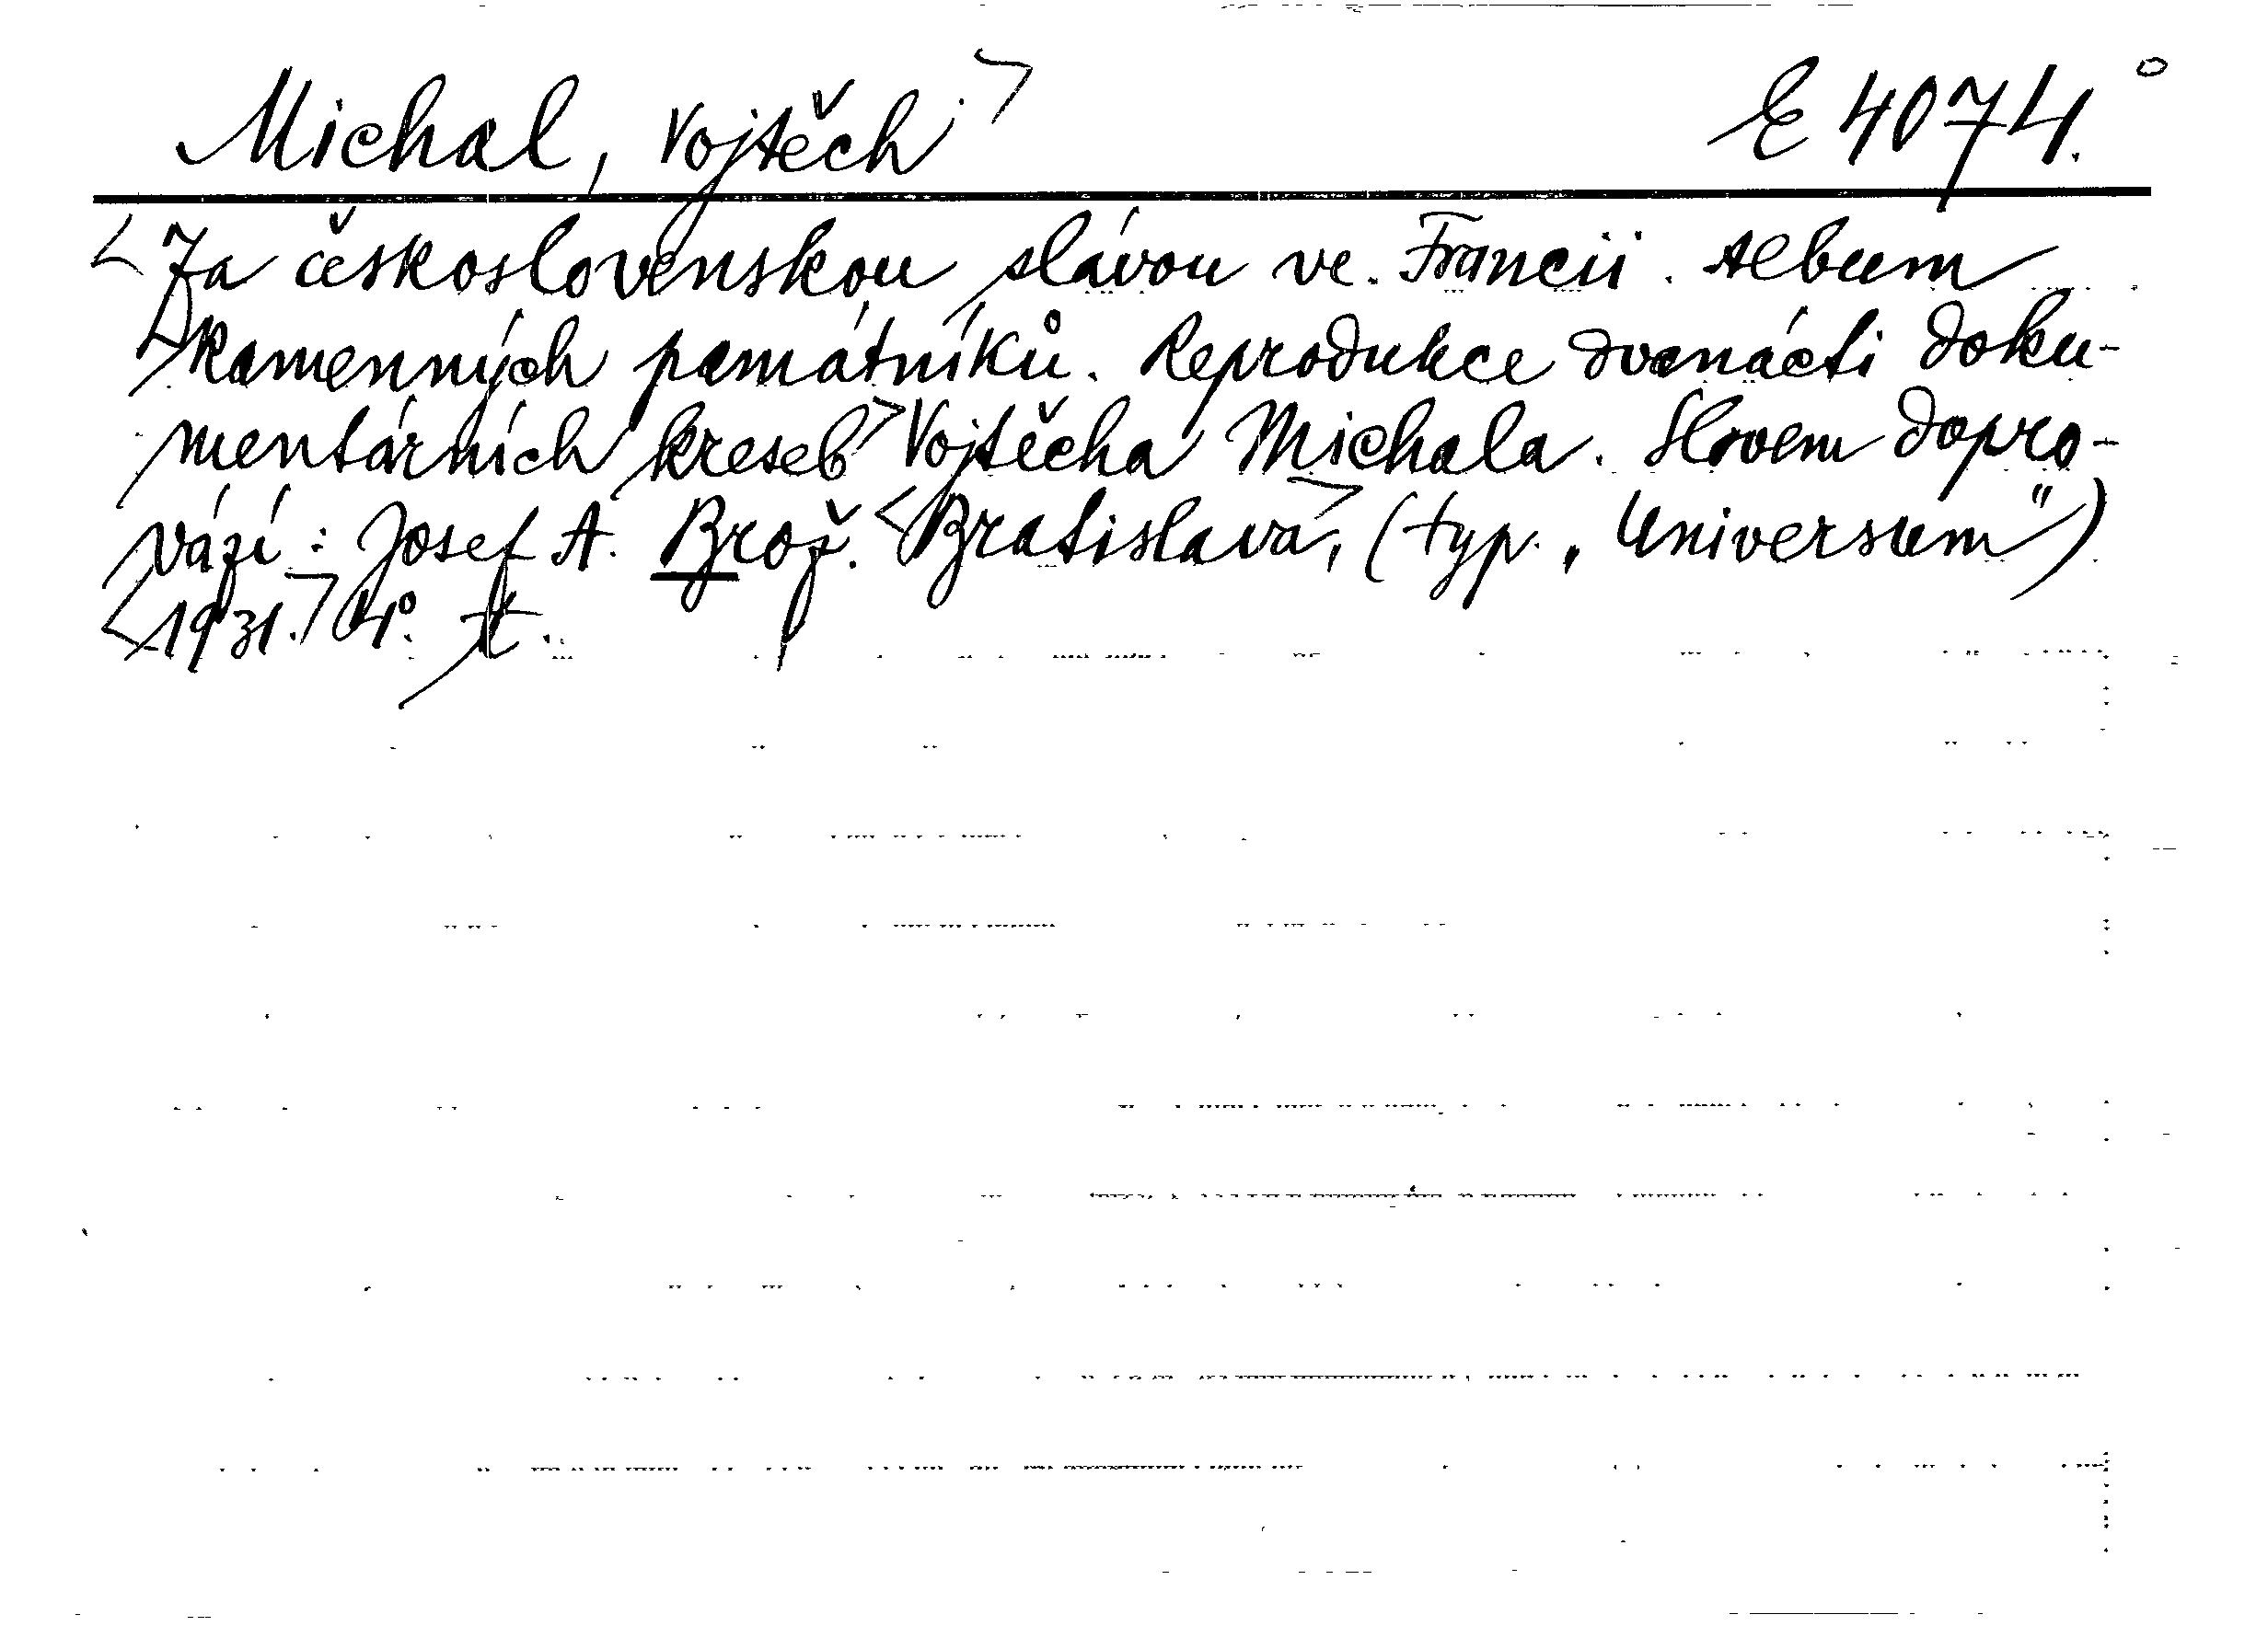 Michal, Vojtěch E 4074.°
Za československou slávou ve Francii. Album
kamenných památníků. Reprodukce dvanácti doku-
mentárních kreseb Vojtěcha Michala. Slovem dopro-
vází: Josef A. Brož. Bratislava, (typ. „Universum")
1931. 4°.